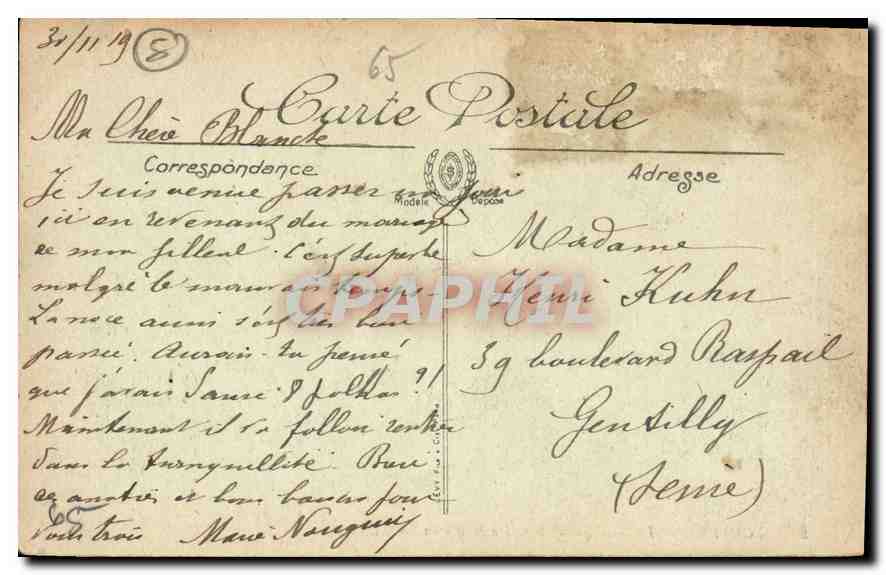 30/11 19 8
65
Carte Postale
Ma Chère Blanche
Correspondance
Adresse
Modèle Déposé
Je suis venue passer un jour
ici en revenant du mariage
de mon filleul. C'est superbe
malgré le mauvais temps.
La noce aussi s'est très bien
passée. Aurais-tu pensé
que j'avais dansé 8 polkas?!
Maintenant il va falloir rentrer
dans la tranquillité. Bien
des amitiés et bons baisers pour
vous trois Marie
65
Madame
Henri Kuhn
39 boulevard Raspail
Gentilly
(Seine)
LEVY Fils &
CPAPHIL